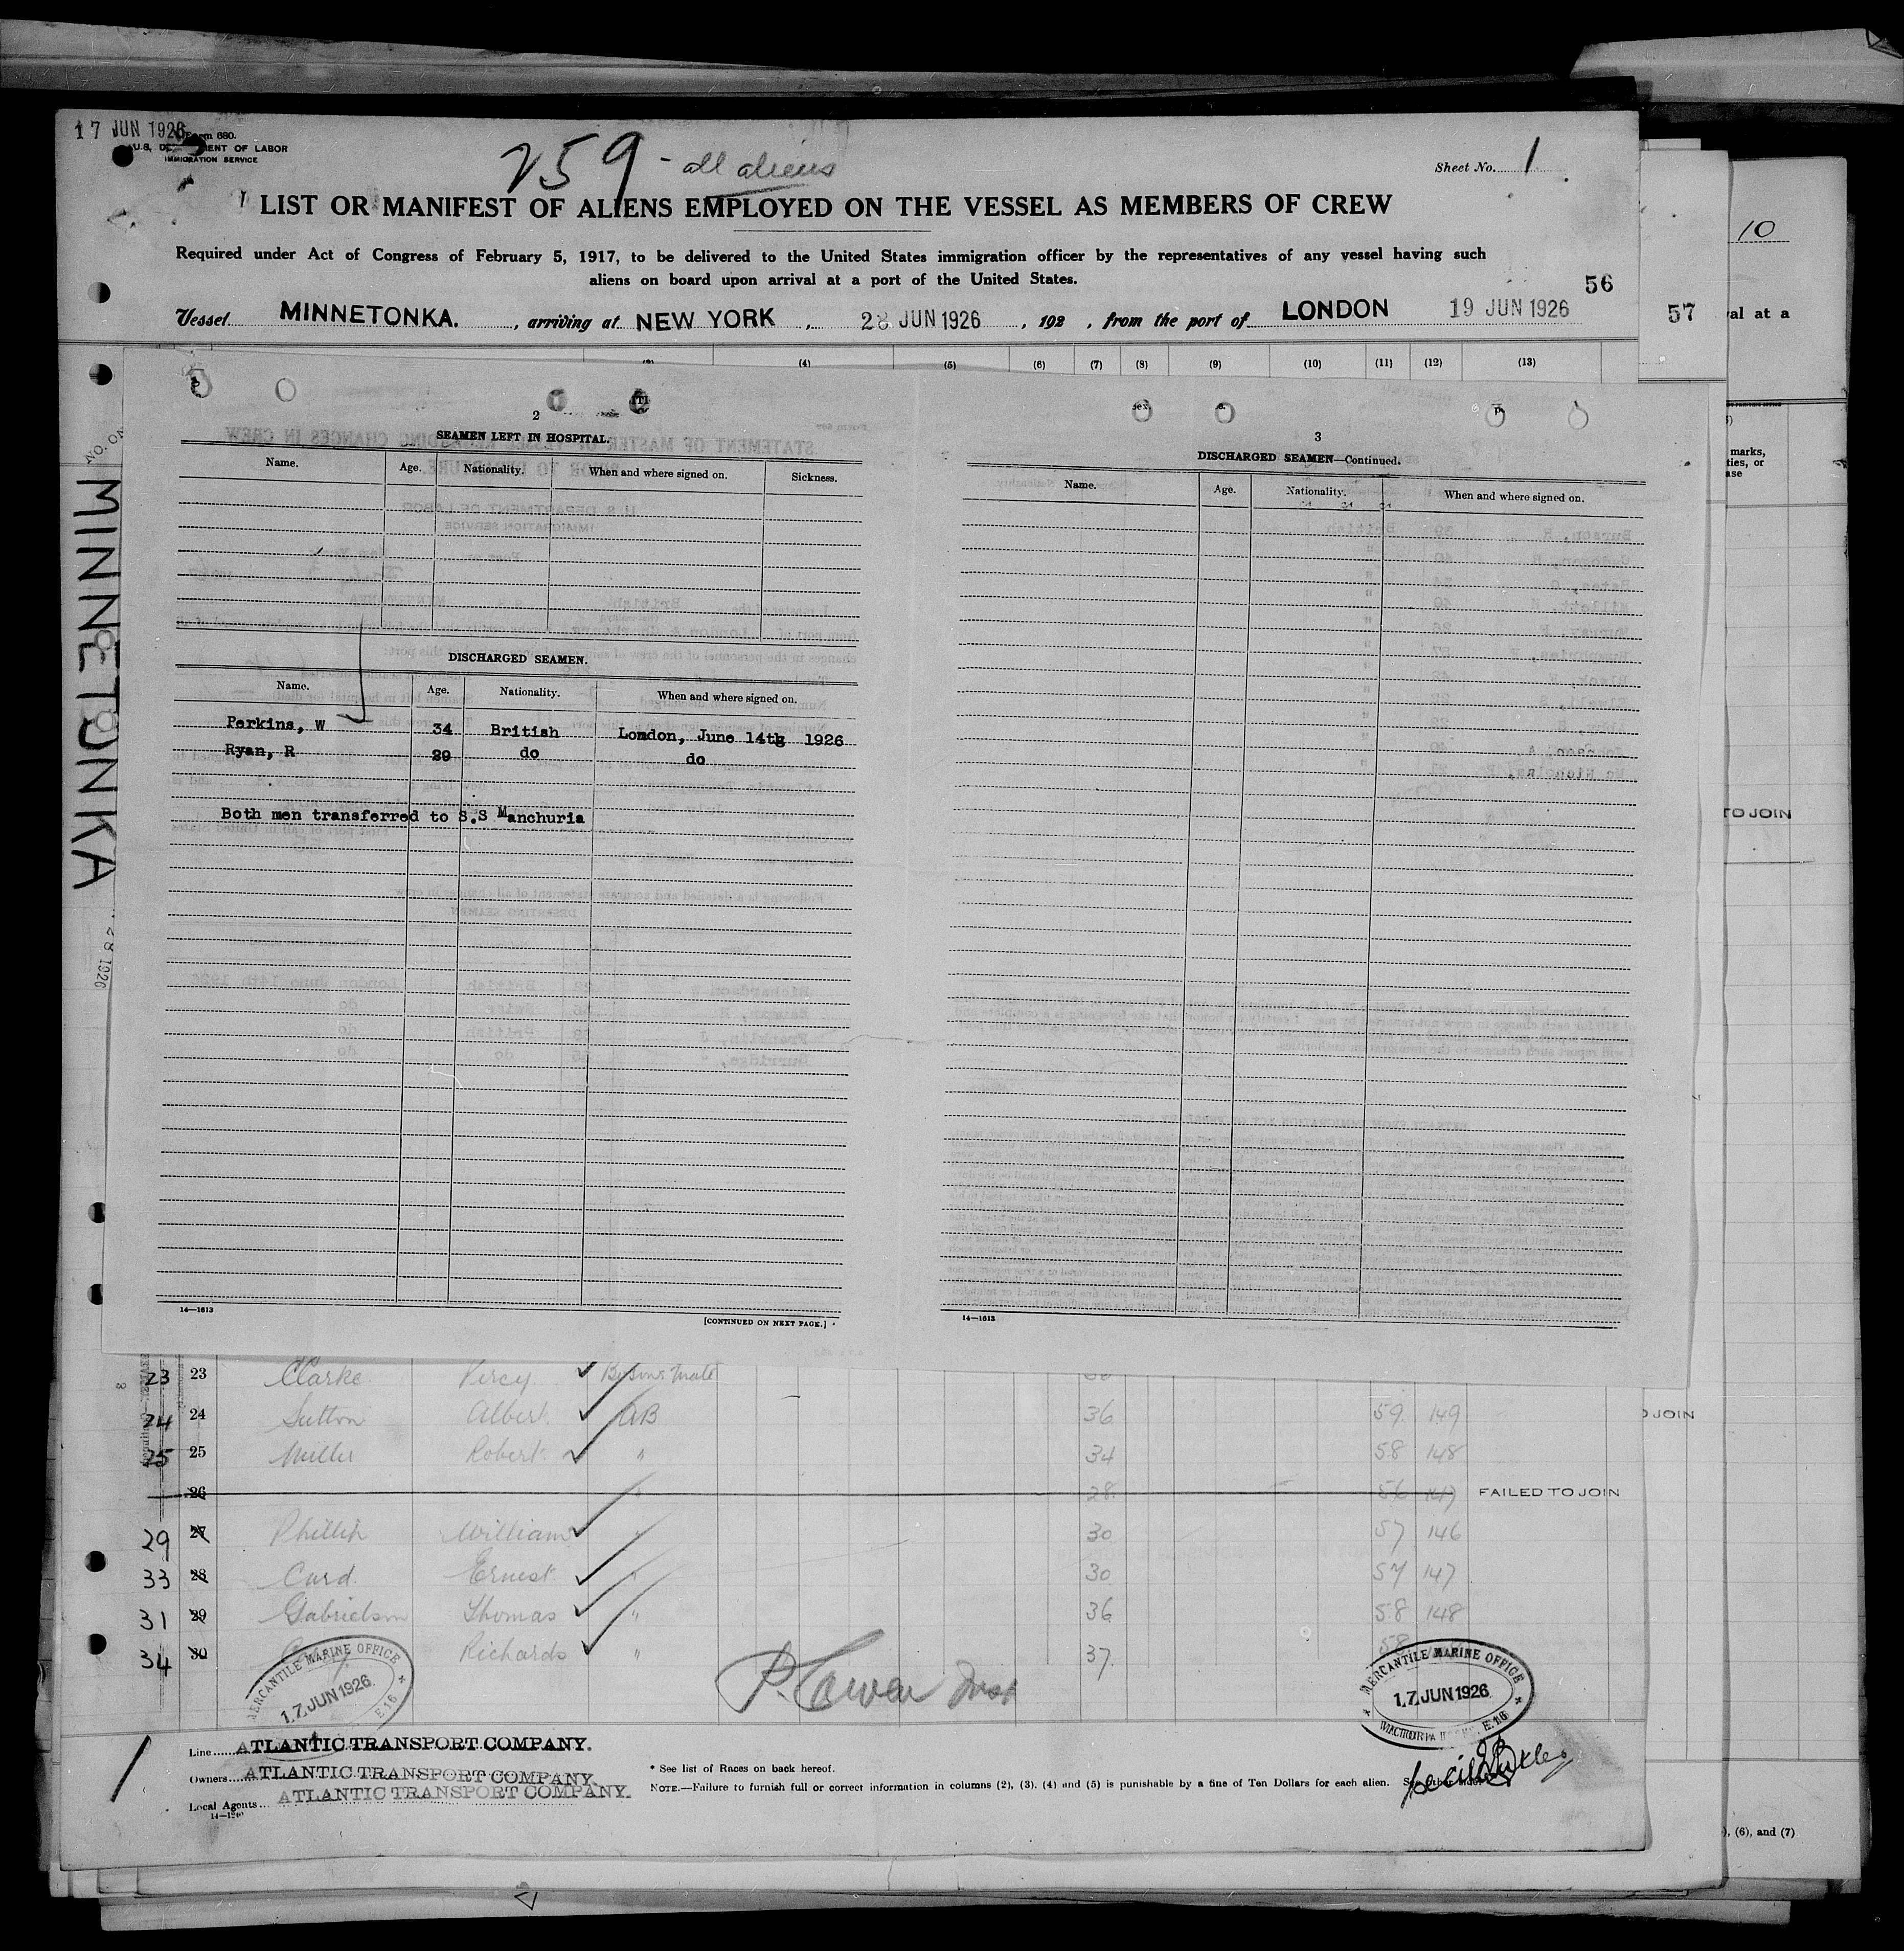 17 JUN 1926
Form 680.
U.S. DEPARTMENT OF LABOR
IMMIGRATION SERVICE
259 - all aliens
Sheet No. 1
LIST OR MANIFEST OF ALIENS EMPLOYED ON THE VESSEL AS MEMBERS OF CREW
Required under Act of Congress of February 5, 1917, to be delivered to the United States immigration officer by the representatives of any vessel having such
aliens on board upon arrival at a port of the United States.
56
Vessel MINNETONKA. , arriving at NEW YORK , 28 JUN 1926 , 192 , from the port of LONDON 19 JUN 1926
10
57
val at a
(4) (5) (6) (7) (8) (9) (10) (11) (12) (13)
marks,
ties, or
TO JOIN
MINNETONKA
2
SEAMEN LEFT IN HOSPITAL.
Name. Age. Nationality. When and where signed on. Sickness.
DISCHARGED SEAMEN.
Name. Age. Nationality. When and where signed on.
Perkins, W 34 British London, June 14th 1926
Ryan, R 29 do do
Both men transferred to S.S Manchuria
14—1613
[CONTINUED ON NEXT PAGE.]
3
DISCHARGED SEAMEN—Continued.
Name. Age. Nationality. When and where signed on.
14—1613
23 23 Clarke Percy Bosons Mate
24 24 Sutton Albert AB 36 59 149
25 25 Miller Robert " 34 58 148
26 " 28 56 147 FAILED TO JOIN
29 27 Phillip William " 30 57 146
33 28 Curd Ernest " 30 57 147
31 29 Gabrielson Thomas " 36 58 148
34 30 Richards " 37 58
O JOIN
MERCANTILE MARINE OFFICE
17 JUN 1926
E.16
MERCANTILE MARINE OFFICE
17 JUN 1926
E.16
1
Line ATLANTIC TRANSPORT COMPANY.
Owners ATLANTIC TRANSPORT COMPANY.
Local Agents ATLANTIC TRANSPORT COMPANY.
14—1240
* See list of Races on back hereof.
NOTE.—Failure to furnish full or correct information in columns (2), (3), (4) and (5) is punishable by a fine of Ten Dollars for each alien.
), (6), and (7)